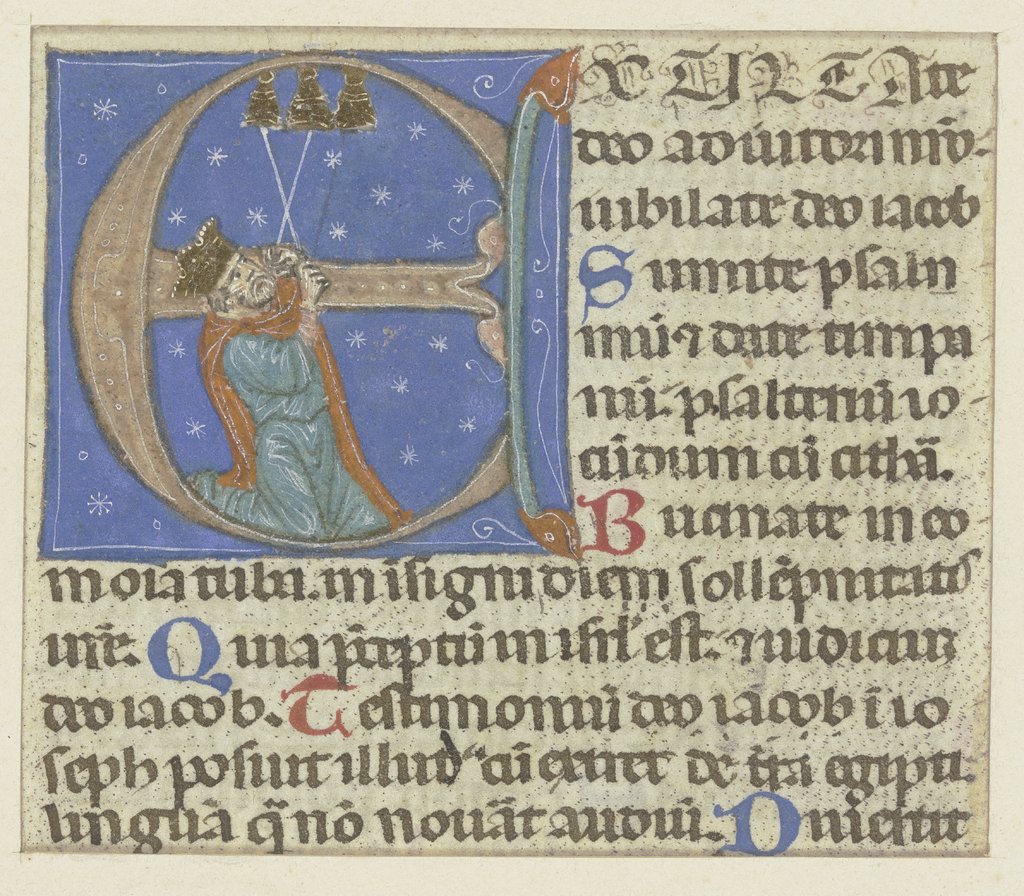 EXULTAte
deo adiutori nr̄o·
iubilate deo iacob
Sumite psalm
mū ⁊ date timpa
nū. psalteriū io
cūdum cū cithā.
Bucinate in eo
m oia tuba. in isigni diem sollēpnitatis
ur̄e. Quia p̄ceptū in isrl est. ⁊ iudicium
deo iacob. Testimoniū deo iacob i io
seph posuit illud cū exiret de tr̄a egipti.
linguā q̄ nō nouāt audiui. Diuertit